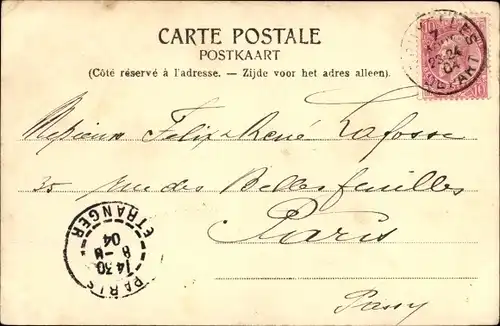 CARTE POSTALE
POSTKAART
(Côté réservé à l'adresse. — Zijde voor het adres alleen).
10 10
7
04
DEPART
Messieurs Felix & René Lafosse
35 rue des Belles feuilles
Paris
Passy
PARIS
14 30
8 - 8
04
ETRANGER